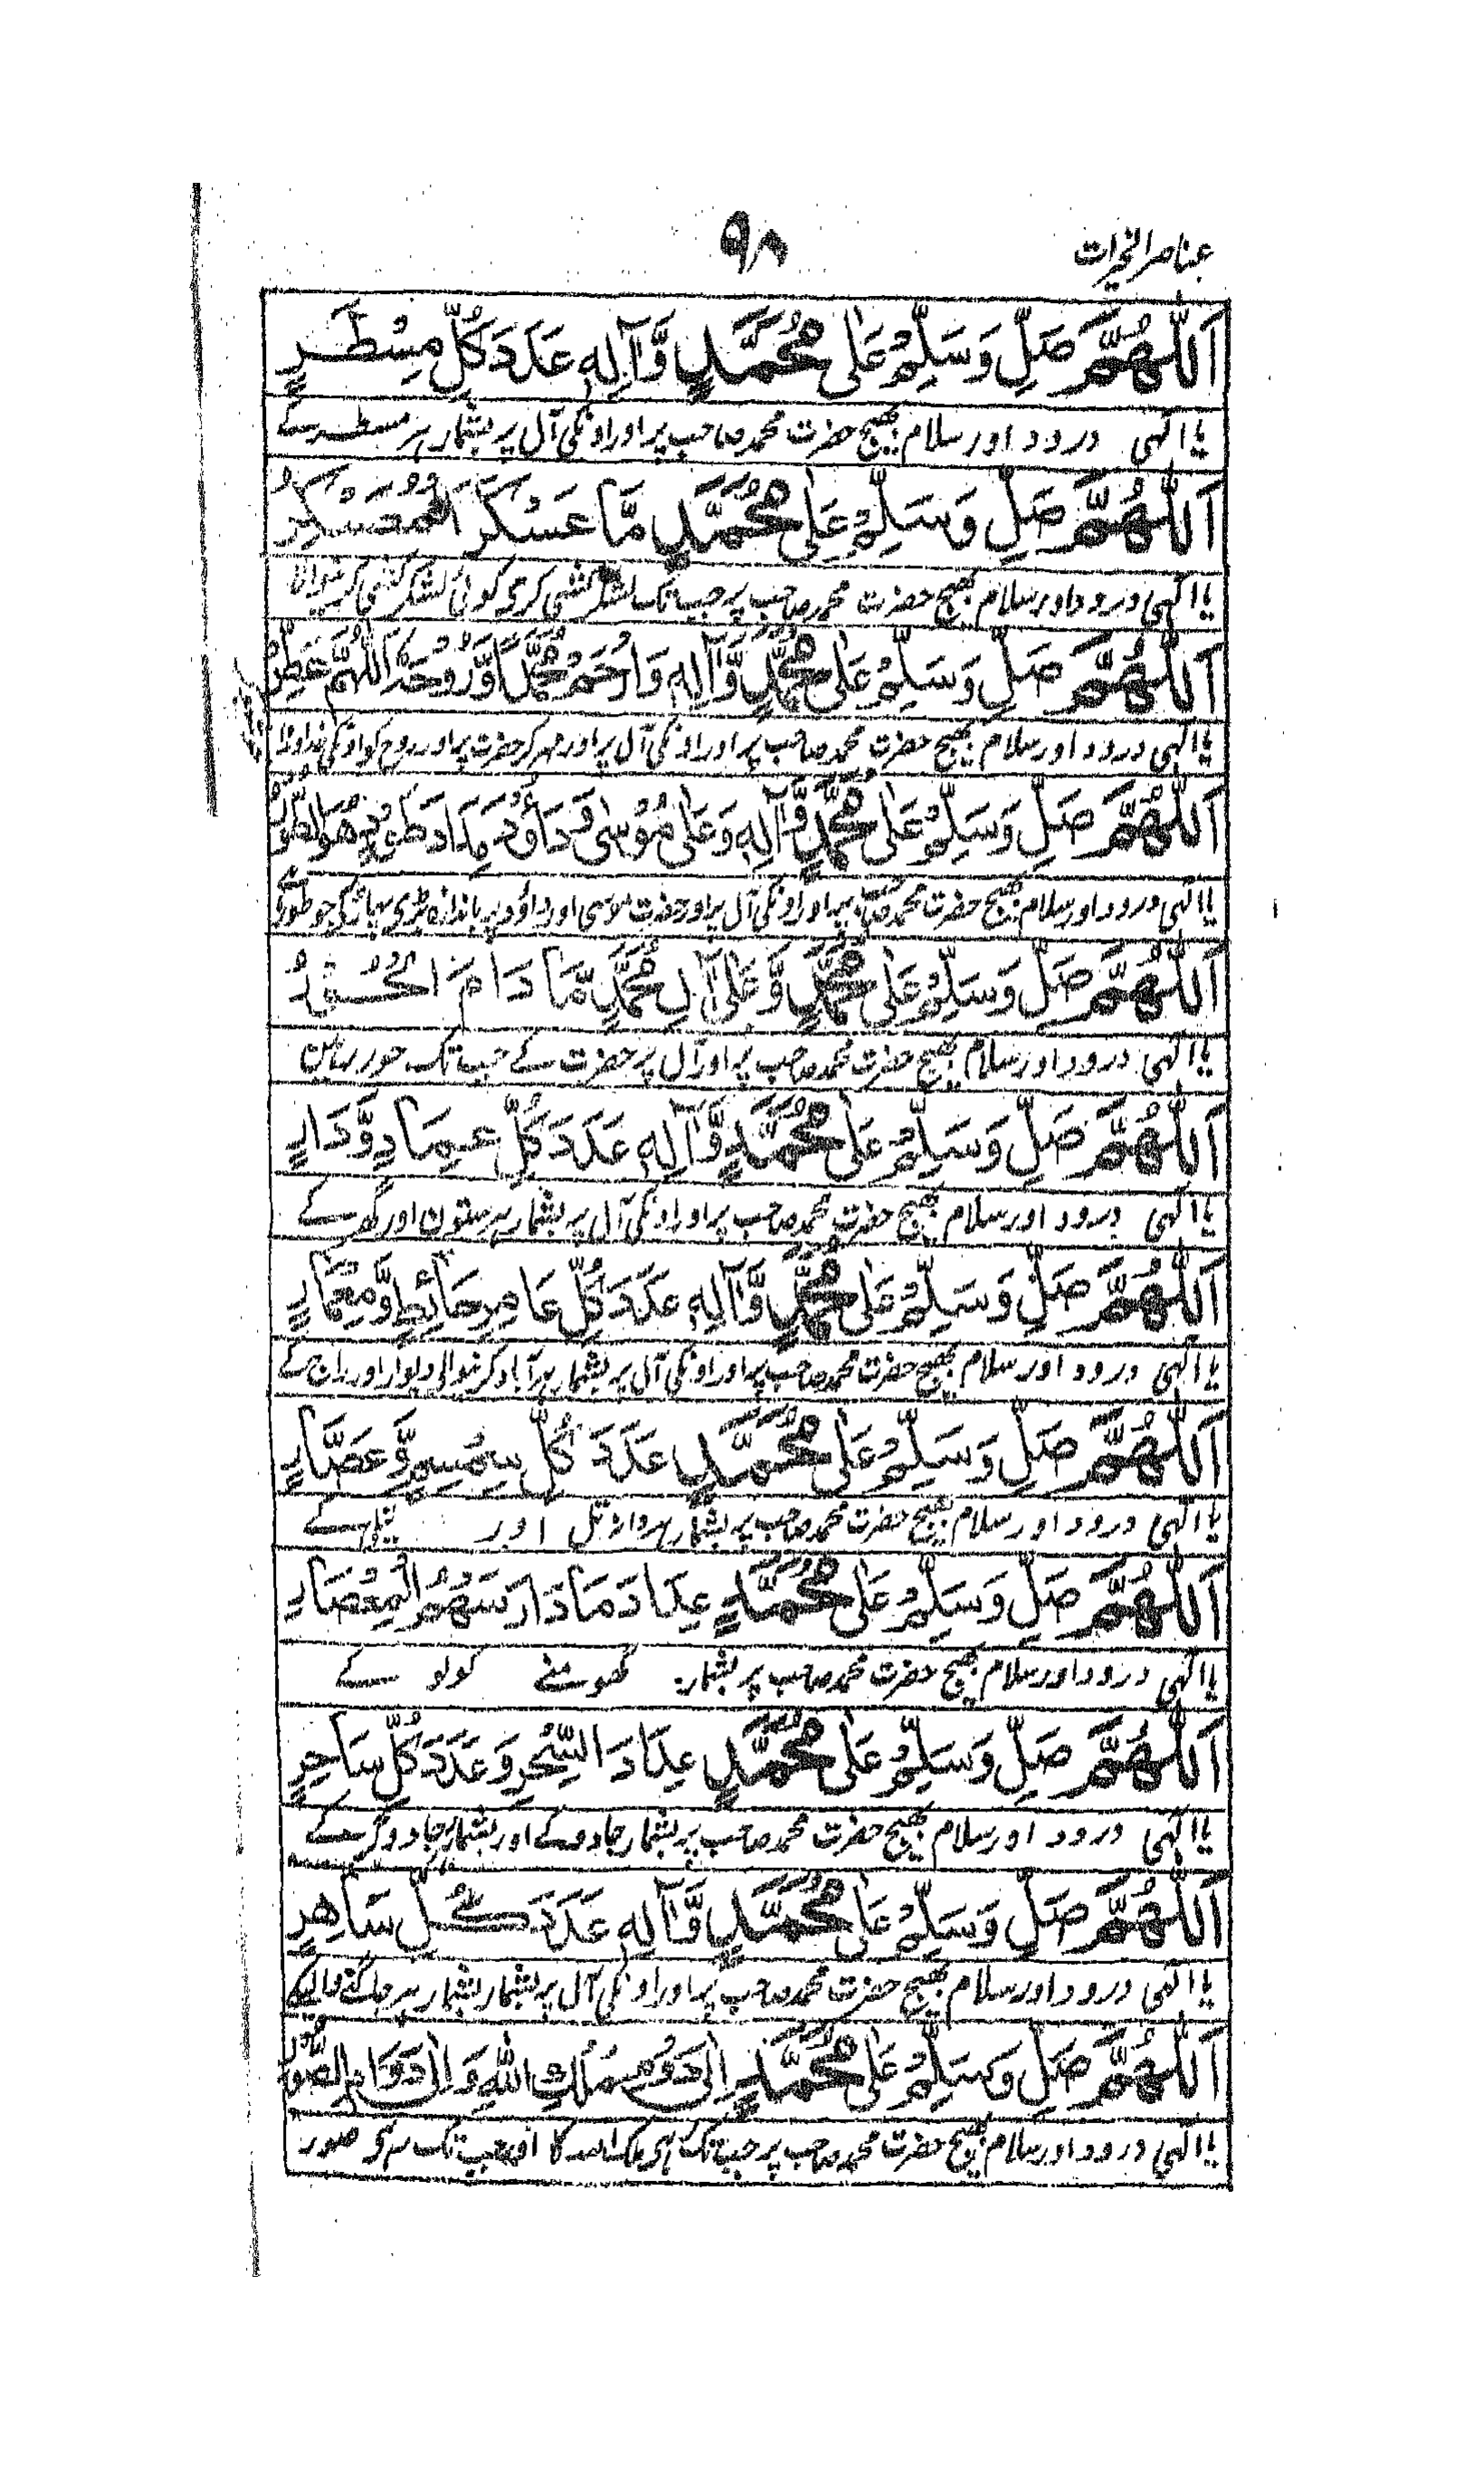 عناصر الخیرات
٩٨
اَللّٰهُمَّ صَلِّ وَسَلِّمْ عَلٰى مُحَمَّدٍ وَّاٰلِهٖ عَدَدَ كُلِّ مِسْطَرٍ
یا الٰہی درود اور سلام بھیج حضرت محمد صاحب پر اور اونکی آل پر بشمار ہر مسطر کے
اَللّٰهُمَّ صَلِّ وَسَلِّمْ عَلٰى مُحَمَّدٍ مَّا عَسْكَرَ الْمُعَسْكِرُ
یا الٰہی درود اور سلام بھیج حضرت محمد صاحب پر جب تک لشکر کشی کری کوئی لشکر کشی کرنیوالا
اَللّٰهُمَّ صَلِّ وَسَلِّمْ عَلٰى مُحَمَّدٍ وَّاٰلِهٖ وَارْحَمْ مُحَمَّدًا وَّرُوْحَهٗ اَللّٰهُمَّ عَطِّرْ
یا الٰہی درود اور سلام بھیج حضرت محمد صاحب پر اور اونکی آل پر اور مہر کر حضرت پر اور روح کو اونکی خداوندا
اَللّٰهُمَّ صَلِّ وَسَلِّمْ عَلٰى مُحَمَّدٍ وَّاٰلِهٖ وَعَلٰى مُوْسٰى وَدَاوٗدَ مِدَادَ طَوْدٍ هُوَ الطُّوْرُ
یا الٰہی درود اور سلام بھیج حضرت محمد صاحب پر اور اونکی آل پر اور حضرت موسی اور داؤد پر باندازہ بڑی پہاڑ کی جو طور ہے
اَللّٰهُمَّ صَلِّ وَسَلِّمْ عَلٰى مُحَمَّدٍ وَّعَلٰى اٰلِ مُحَمَّدٍ مَّا دَامَ الْحُوْرُ
یا الٰہی درود اور سلام بھیج حضرت محمد صاحب پر اور آل پر حضرت کے جب تک حور رہیں
اَللّٰهُمَّ صَلِّ وَسَلِّمْ عَلٰى مُحَمَّدٍ وَّاٰلِهٖ عَدَدَ كُلِّ عِمَادٍ وَّدَارٍ
یا الٰہی درود اور سلام بھیج حضرت محمد صاحب پر اور اونکی آل پر بشمار ہر ستون اور گھر کے
اَللّٰهُمَّ صَلِّ وَسَلِّمْ عَلٰى مُحَمَّدٍ وَّاٰلِهٖ عَدَدَ كُلِّ عَامِرِ حَائِطٍ وَّمِعْمَارٍ
یا الٰہی درود اور سلام بھیج حضرت محمد صاحب پر اور اونکی آل پر بشمار ہر آباد کرنیوالی دیوار اور راج کے
اَللّٰهُمَّ صَلِّ وَسَلِّمْ عَلٰى مُحَمَّدٍ عَدَدَ كُلِّ سِمْسِمٍ وَّعَصَّارٍ
یا الٰہی درود اور سلام بھیج حضرت محمد صاحب پر بشمار ہر دانہ تل اور کے
اَللّٰهُمَّ صَلِّ وَسَلِّمْ عَلٰى مُحَمَّدٍ عِدَادَ مَا دَارَ سَهْمُ الْمِعْصَارِ
یا الٰہی درود اور سلام بھیج حضرت محمد صاحب پر بشمار گھومنے کولو کے
اَللّٰهُمَّ صَلِّ وَسَلِّمْ عَلٰى مُحَمَّدٍ عِدَادَ السِّحْرِ وَعَدَدَ كُلِّ سَاحِرٍ
یا الٰہی درود اور سلام بھیج حضرت محمد صاحب پر بشمار جادو کے اور بشمار ہر جادوگر کے
اَللّٰهُمَّ صَلِّ وَسَلِّمْ عَلٰى مُحَمَّدٍ وَّاٰلِهٖ عَدَدَ كُلِّ سَاهِرٍ
یا الٰہی درود اور سلام بھیج حضرت محمد صاحب پر اور اونکی آل پر بشمار بشمار ہر جاگنے والیکے
اَللّٰهُمَّ صَلِّ وَسَلِّمْ عَلٰى مُحَمَّدٍ اِلٰى دَوَامِ مُلْكِ اللّٰهِ وَاِلٰى دَوَامِ الصُّوْرِ
یا الٰہی درود اور سلام بھیج حضرت محمد صاحب پر جب تک ہی ملک اللہ کا اور جب تک رہی صور